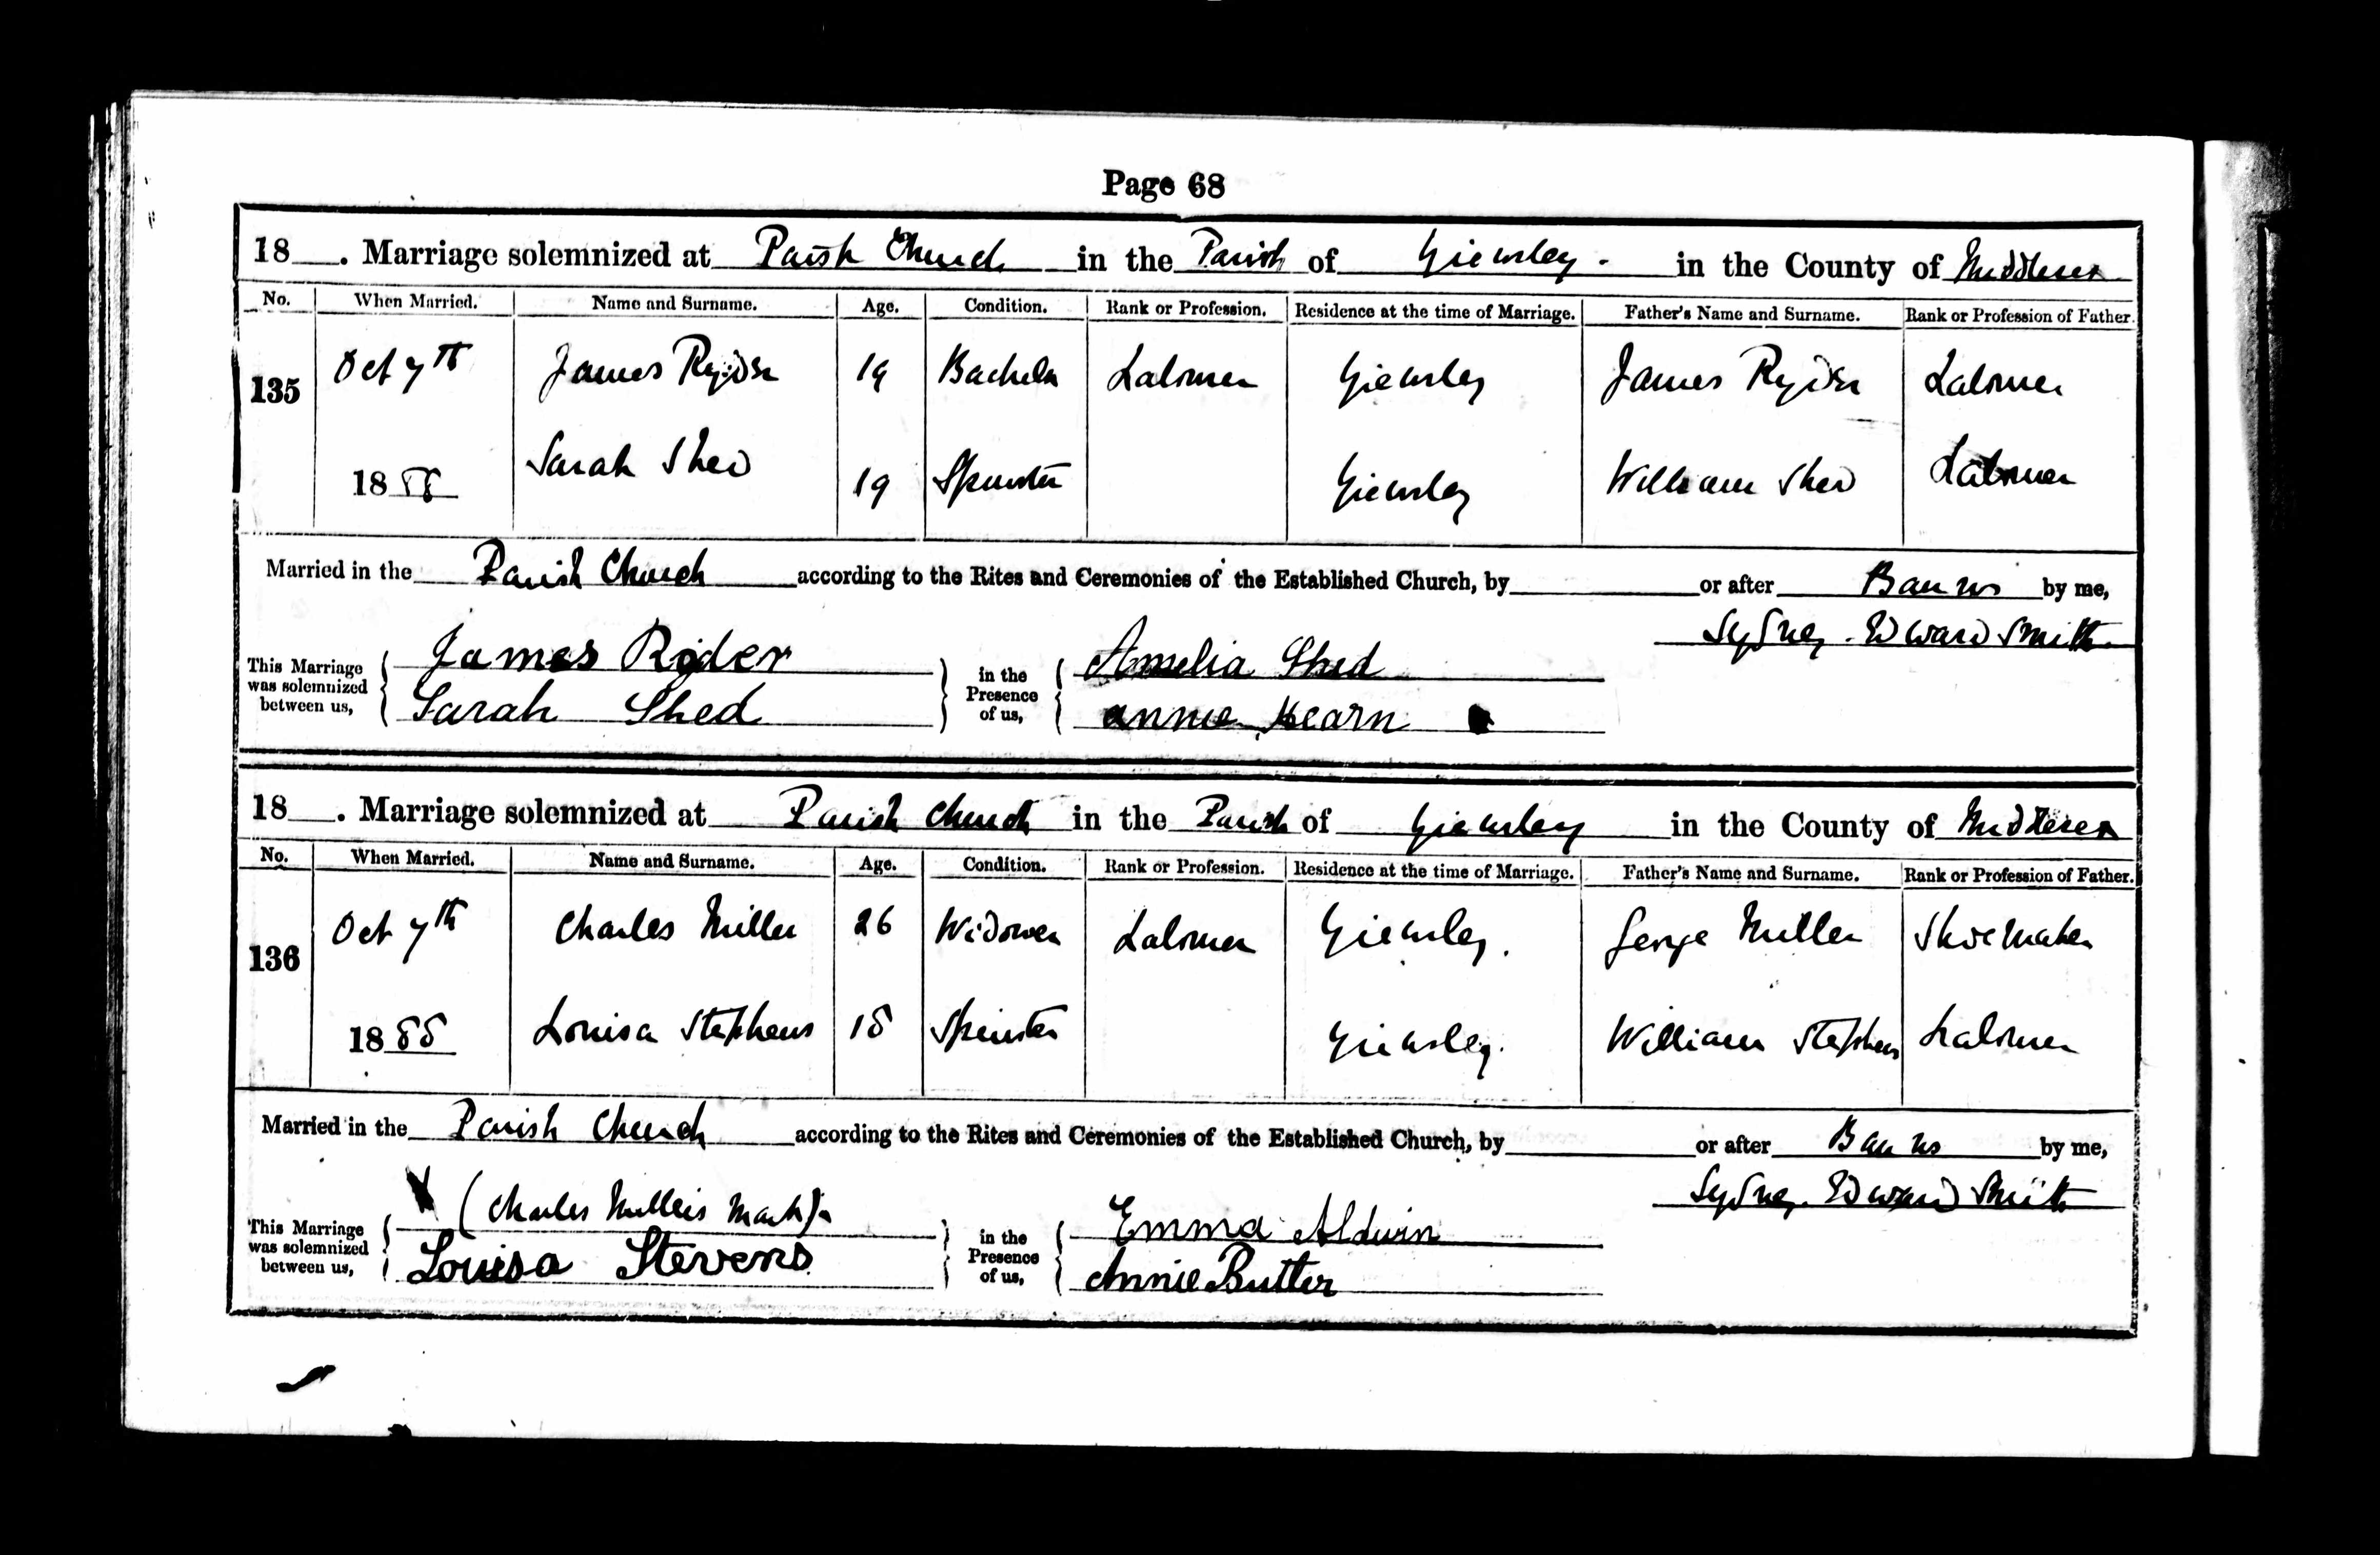 Page 68
18 . Marriage solemnized at Parish Church in the Parish of Yiewsley . in the County of Middlesex
No. When Married. Name and Surname. Age. Condition. Rank or Profession. Residence at the time of Marriage. Father's Name and Surname. Rank or Profession of Father.
135 Oct 7th James Ryder 19 Bachelor Labourer Yiewsley James Ryder Labourer
1888 Sarah Shed 19 Spinster Yiewsley William Shed Labourer
Married in the Parish Church according to the Rites and Ceremonies of the Established Church, by or after Banns by me,
Sydney Edward Smith
This Marriage was solemnized between us, James Rider in the Presence of us, Amelia Shed
Sarah Shed annie Hearn
18 . Marriage solemnized at Parish Church in the Parish of Yiewsley in the County of Middlesex
No. When Married. Name and Surname. Age. Condition. Rank or Profession. Residence at the time of Marriage. Father's Name and Surname. Rank or Profession of Father.
136 Oct 7th Charles Miller 26 Widower Labourer Yiewsley. George Miller Shoemaker
1888 Louisa Stephens 18 Spinster Yiewsley. William Stephens Labourer
Married in the Parish Church according to the Rites and Ceremonies of the Established Church, by or after Banns by me,
Sydney Edward Smith
This Marriage was solemnized between us, X (Charles Miller's Mark) in the Presence of us, Emma Aldwin
Louisa Stevens Annie Butter